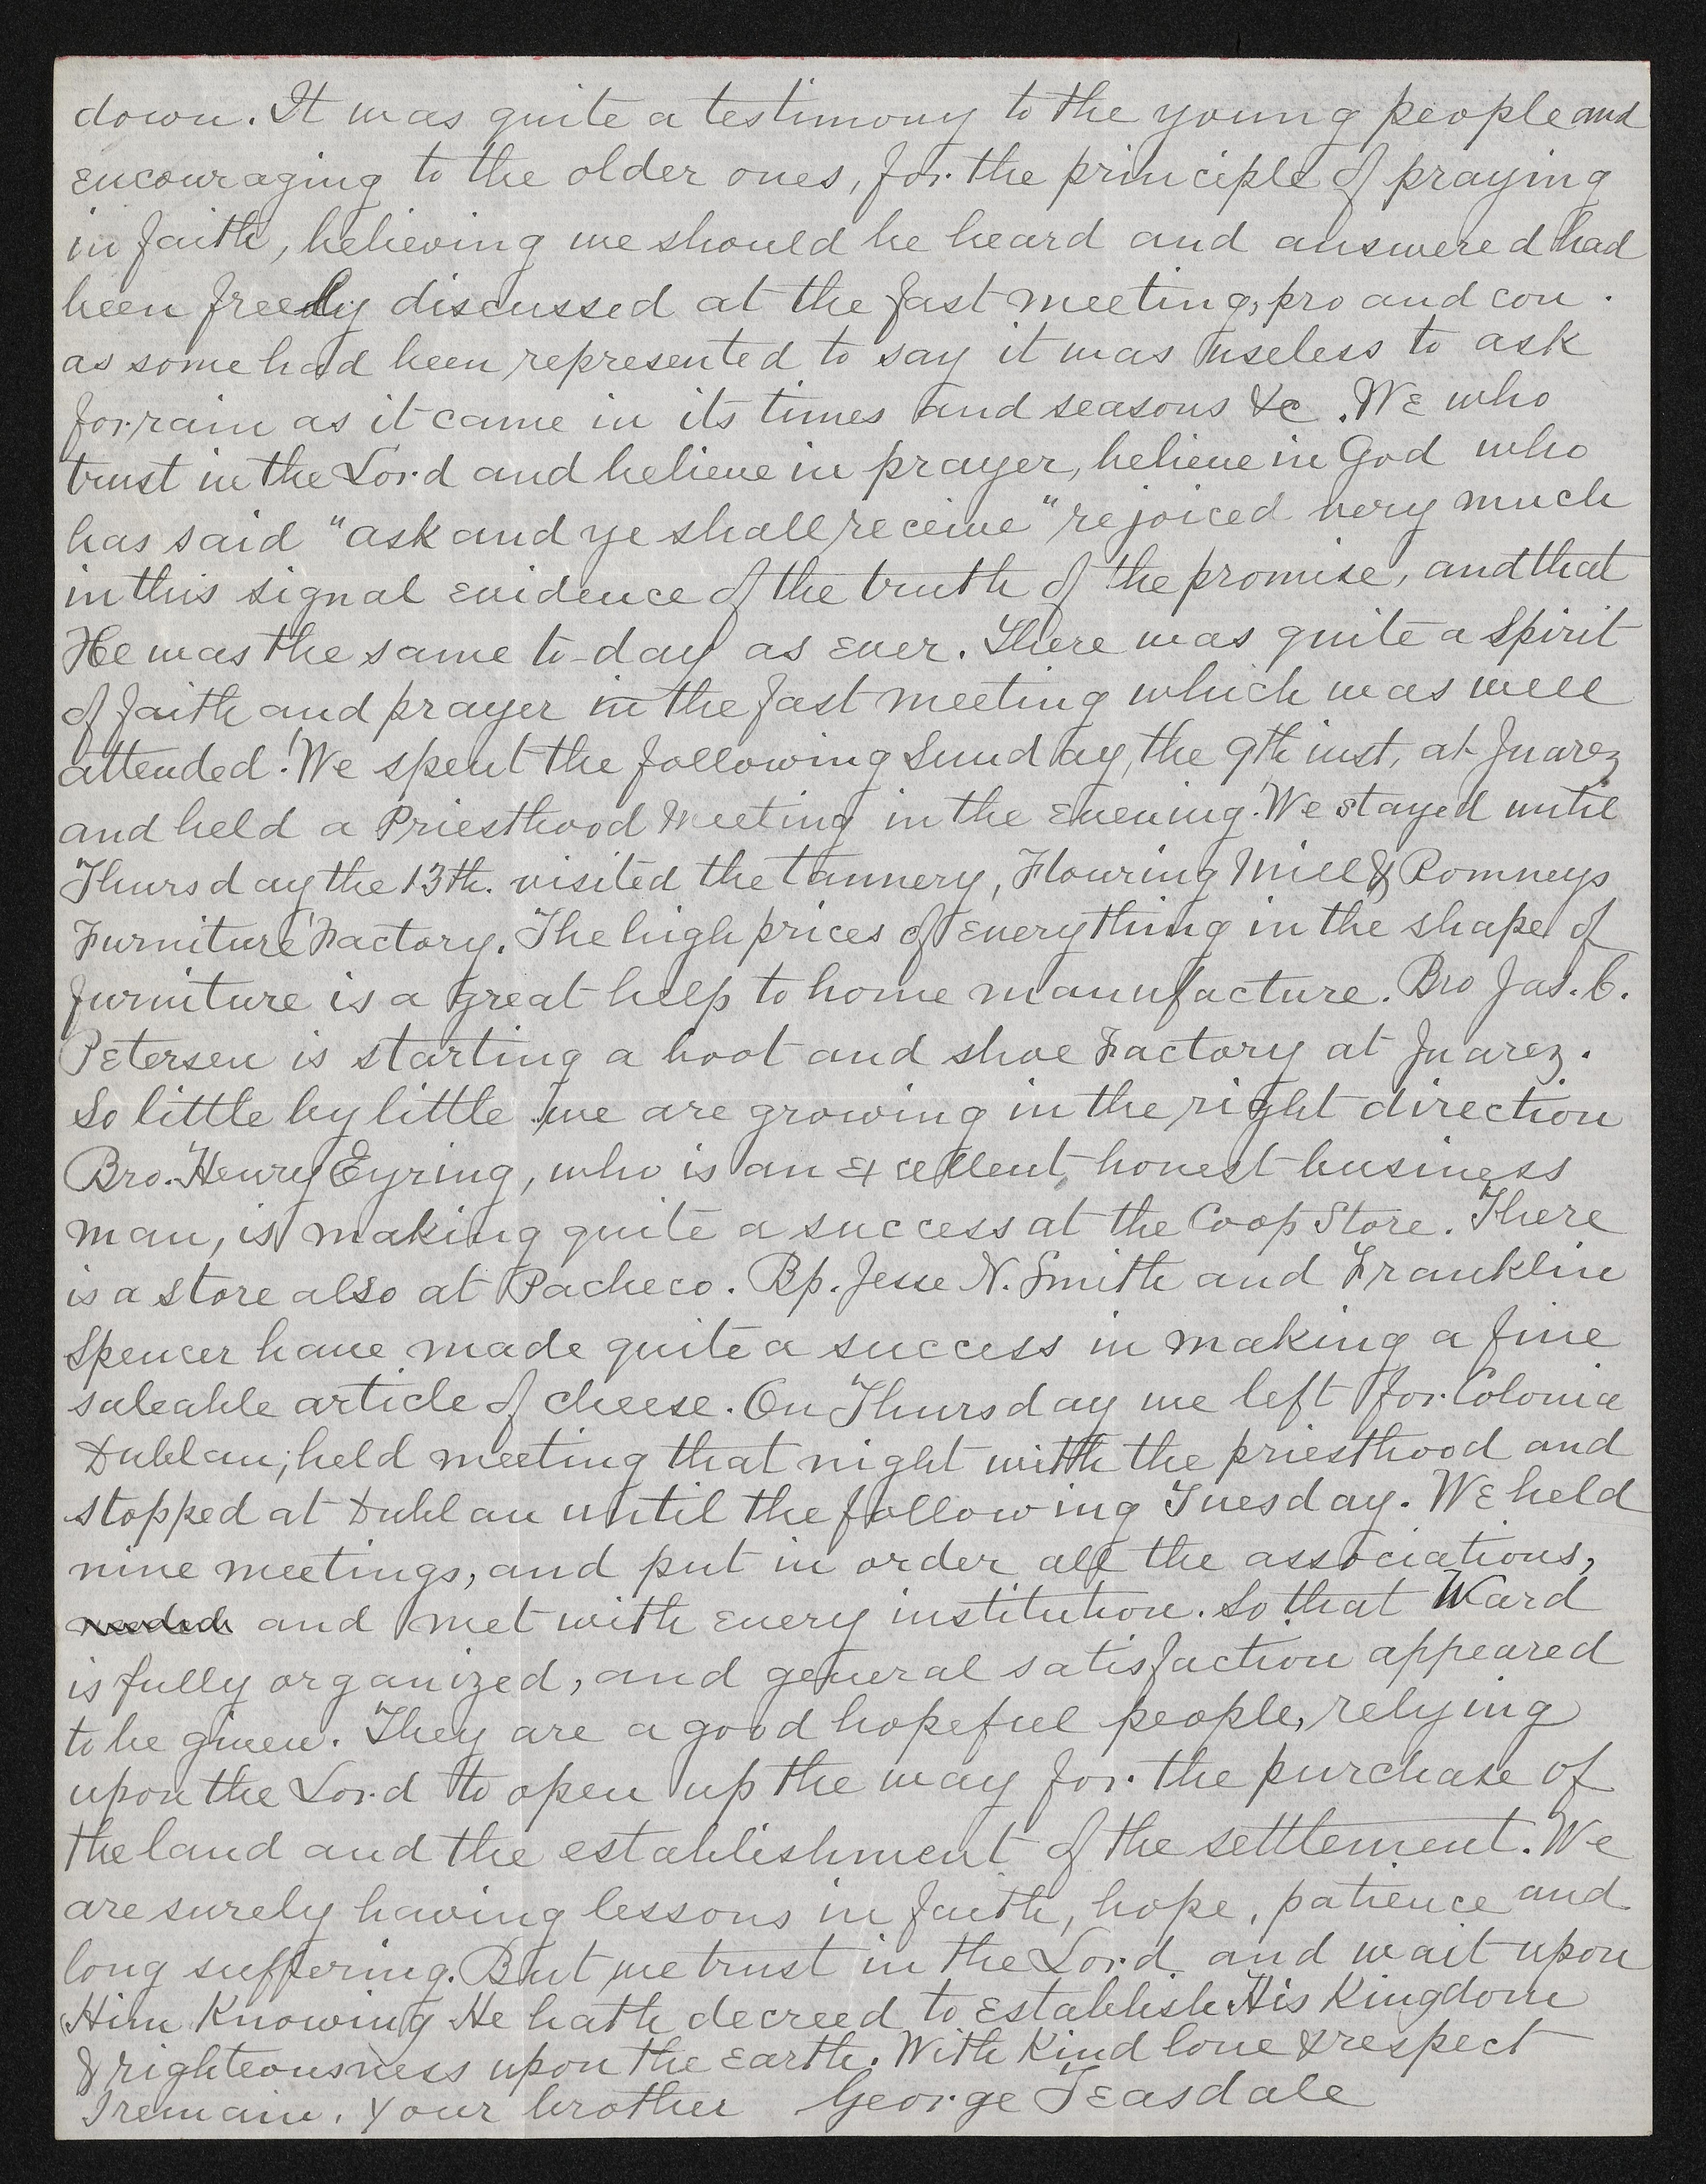 down. It was quite a testimony to the young people and
encouraging to the older ones, for the principle of praying
in faith, believing we should be heard and answered had
been freely discussed at the fast meeting, pro and con.
as some had been represented to say it was useless to ask
for rain as it came in its times and seasons &c. We who
trust in the Lord and believe in prayer, believe in God who
has said "ask and ye shall receive" rejoiced very much
in this signal evidence of the truth of the promise, and that
He was the same to-day as ever. There was quite a spirit
of faith and prayer in the fast meeting which was well
attended! We spent the following Sunday, the 9th inst, at Juarez
and held a Priesthood Meeting in the evening. We stayed until
Thursday the 13th. visited the tannery, Flouring Mill & Romneys
Furniture Factory. The high prices of everything in the shape of
furniture is a great help to home manufacture. Bro Jas. C.
Petersen is starting a boot and shoe Factory at Juarez.
So little by little we are growing in the right direction
Bro. Henry Eyring, who is an excellent, honest business
man, is making quite a success at the Coop Store. There
is a store also at Pacheco. Bp. Jesse N. Smith and Franklin
Spencer have made quite a success in making a fine
saleable article of cheese. On Thursday we left for Colonia
Dublan; held meeting that night with the priesthood and
stopped at Dublan until the following Tuesday. We held
nine meetings, and put in order all the associations,
needed and met with every institution. So that Ward
is fully organized, and general satisfaction appeared
to be given. They are a good hopeful people, relying
upon the Lord to open up the way for the purchase of
the land and the establishment of the settlement. We
are surely having lessons in faith, hope, patience and
long suffering. But we trust in the Lord and wait upon
Him Knowing He hath decreed to establish His Kingdom
& righteousness upon the earth. With Kind love & respect
I remain. Your brother George Teasdale